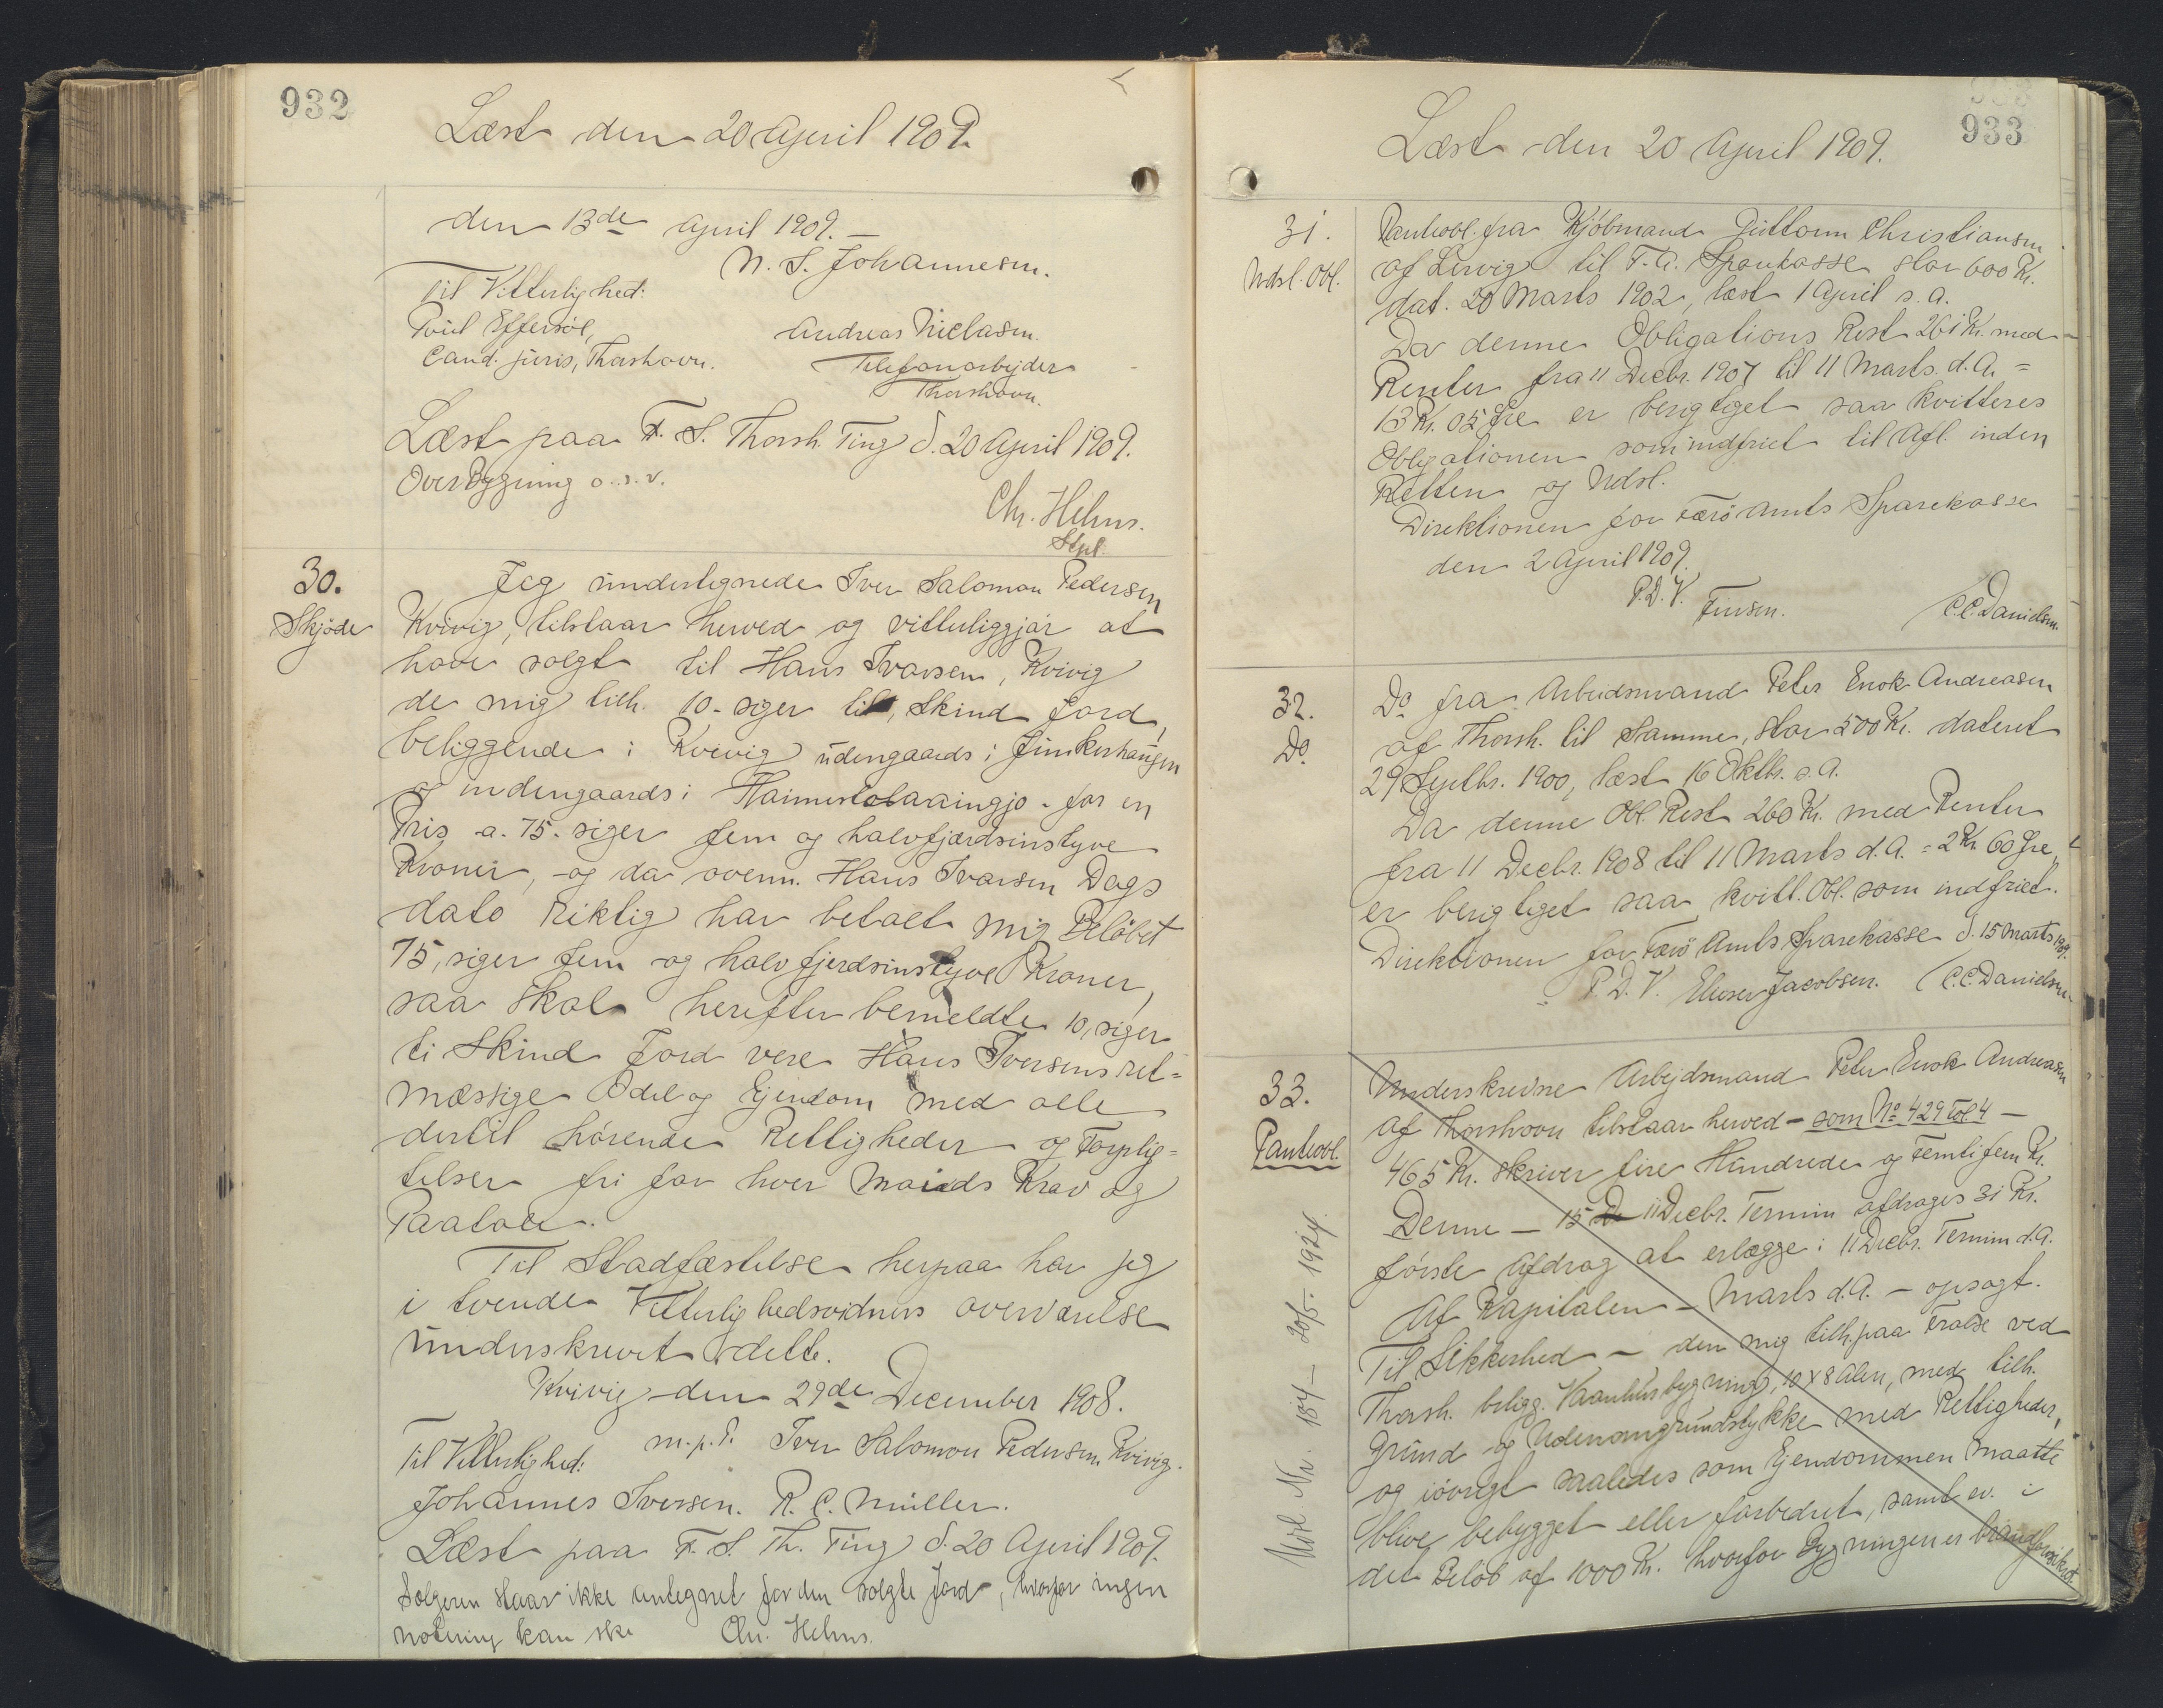 932
Læst den 20 April 1909.
den 13de April 1909. –
N. S. Johannesen.
Til Vitterlighed:
Poul Effersöe, Andreas Niclasen.
Cand. juris, Thorshavn. Telefonarbejder
Thorshavn.
Læst paa F. S. Thorsh. Ting d. 20 April 1909.
Overbygning o.s.v.
Chr. Helms.
Stpl.
30.
Skjöde
Jeg undertegnede Iver Salomon Pedersen
Kvivig, tilstaar herved og vitterliggjör at
have solgt til Hans Ivarsen, Kvivig
de mig tilh. 10 - siger ti, Skind Jord,
beliggende i Kvivig udengaards i Junkerhaugen
og indengaards i – for en
Pris a. 75. siger fem og halvfjærdsinstyve
Kroner, – og da ovenn. Hans Ivarsen Dags
dato Riktig har betalt mig Belöbet
75, siger fem og halvfjerdsinstyve Kroner,
saa skal herefter bemeldte 10, siger
ti Skind Jord vere Hans Iversens ret=
mæssige Odel og Ejendom med alle
dertil hörende Rettigheder og Forplig=
telser fri for hver Mands Krav og
Paatale.
Til Stadfæstelse herpaa har jeg
i tvende Vitterlighedsvidners overværelse
underskrevet dette.
Kvivig den 29de December 1908.
m.p.P. Iver Salomon Pedersen, Kvivig.
Til Vitterlighed:
Johannes Iversen. R. C. Müller.
Læst paa F. S. Th. Ting d. 20 April 1909.
Sælgeren staar ikke antegnet for den solgte Jord, hvorfor ingen
Notering kan ske Chr. Helms.
933
Læst den 20 April 1909.
31.
Udsl. Obl.
Panteobl. fra Kjöbmand Guttorm Christiansen
af Lervig til F. A. Sparekasse stor 600 Kr.
dat. 20 Marts 1902, læst 1 April s. A.
Da denne Obligations Rest 261 Kr. med
Renter fra 11 Decbr. 1907 til 11 Marts d. A. =
13 Kr. 05 Öre er berigtiget saa kvitteres
Obligationen som indfriet til Afl. inden
Retten og Udsl.
Direktionen for Færö Amts Sparekasse
den 2 April 1909.
P. D. V.
Finsen. C. C. Danielsen.
32.
Do
Do fra Arbeidsmand Peter Enok Andreasen
af Thorsh. til Samme, stor 500 Kr. dateret
29 Septbr. 1900, læst 16 Oktbr. s. A.
Da denne Obl. Rest 260 Kr. med Renter
fra 11 Decbr. 1908 til 11 Marts d. A. = 2 Kr. 60 Öre,
er berigtiget saa kvitt. Obl. som indfriet.
Direktionen for Færö Amts Sparekasse d. 15 Marts 1909.
P. D. V. Elieser Jacobsen. C. C. Danielsen.
33.
Panteobl.
Underskrevne Arbejdsmand Peter Enok Andreasen
af Thorshavn tilstaar herved – som No 429 Fol 4 –
465 Kr. skriver fire Hundrede og Femtifem Kr.
Denne – 15 De 11 Decbr. Termin afdrages 31 Kr.
förste Afdrag at erlægge i 11 Decbr. Termin d. A.
Af Kapitalen – Marts d. A. – opsagt.
Til Sikkerhed – den mig tilh. paa ved
Thorsh. beligg. Vaanhusbygning, 10 x 8 Alen, med tilh.
Grund og Udenomgrundstykke med Rettigheder,
og iövrigt saaledes som Ejendommen maatte
blive bebygget eller forbedret, samt ev. i
det Belöb af 1000 Kr. hvorfor Bygningen er brandforsikret
Udsl. Nr. 184 – 20/5 – 1924